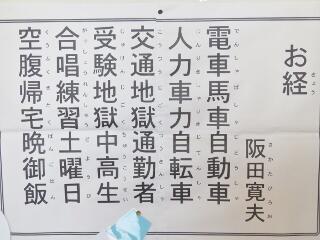 お経
阪田寛夫
電車馬車自動車
人力車力自転車
交通地獄通勤者
受験地獄中高生
合唱練習土曜日
空腹帰宅晩御飯